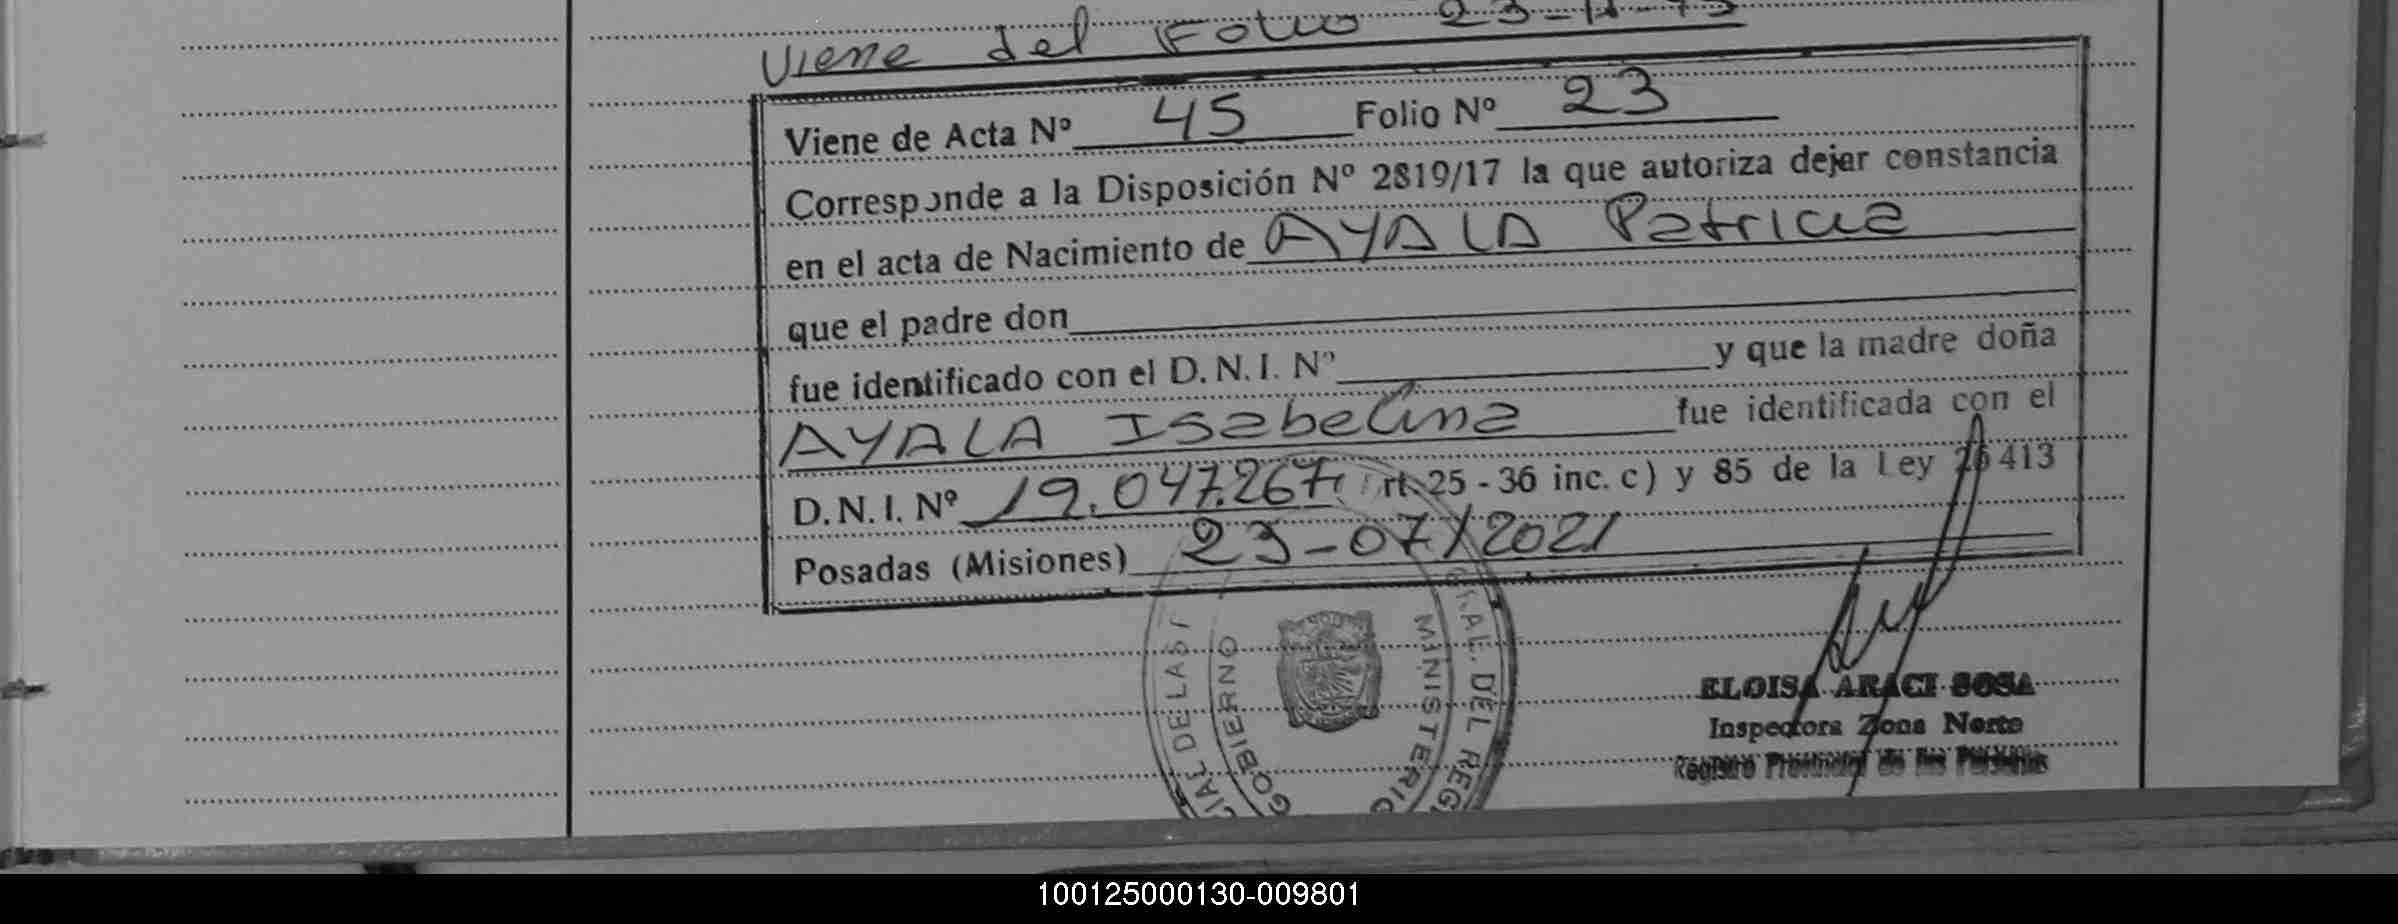 Viene del Folio 23
Viene de Acta Nº 45 Folio Nº 23
Corresponde a la Disposición Nº 2819/17 la que autoriza dejar constancia
en el acta de Nacimiento de AYALA Patricia
que el padre don
fue identificado con el D. N. I. Nº y que la madre doña
AYALA Isabelina fue identificada con el
D. N. I. Nº 19.047.267 rt. 25 - 36 inc. c) y 85 de la Ley 26 413
Posadas (Misiones) 23-07/2021
MINISTERIO
GOBIERNO
ELOISA ARACI SOSA
Inspectora Zona Norte
Registro Provincial de las Personas
100125000130-009801